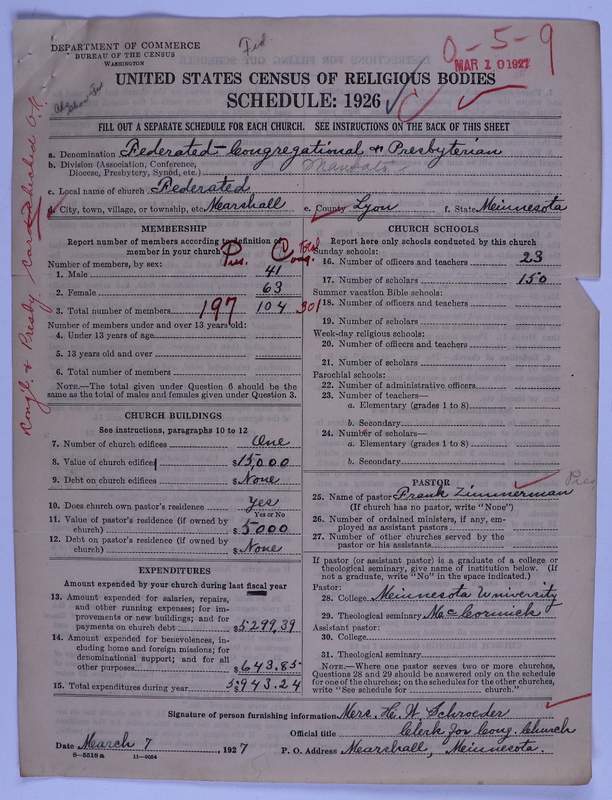 DEPARTMENT OF COMMERCE
BUREAU OF THE CENSUS
WASHINGTON
Fed
0-5-9
MAR 10 1927
UNITED STATES CENSUS OF RELIGIOUS BODIES
SCHEDULE: 1926
FILL OUT A SEPARATE SCHEDULE FOR EACH CHURCH. SEE INSTRUCTIONS ON THE BACK OF THIS SHEET
a. Denomination Federated - Congregational & Presbyterian
b. Division (Association, Conference, Diocese, Presbytery, Synod, etc.) Mankato
c. Local name of church Federated
d. City, town, village, or township, etc. Marshall e. County Lyon f. State Minnesota
Cong'l & Presby. Card checked O.K.
MEMBERSHIP
Report number of members according to definition of member in your church
Pres. Cong. Total
Number of members, by sex:
1. Male 41
2. Female 63
3. Total number of members 197 104 301
Number of members under and over 13 years old:
4. Under 13 years of age
5. 13 years old and over
6. Total number of members
NOTE.—The total given under Question 6 should be the same as the total of males and females given under Question 3.
CHURCH BUILDINGS
See instructions, paragraphs 10 to 12
7. Number of church edifices One
8. Value of church edifices $15,000
9. Debt on church edifices $None
10. Does church own pastor's residence Yes
Yes or No
11. Value of pastor's residence (if owned by church) $5000
12. Debt on pastor's residence (if owned by church) $None
EXPENDITURES
Amount expended by your church during last fiscal year
13. Amount expended for salaries, repairs, and other running expenses; for improvements or new buildings; and for payments on church debt $5299,39
14. Amount expended for benevolences, including home and foreign missions; for denominational support; and for all other purposes $643.85
15. Total expenditures during year $5943.24
CHURCH SCHOOLS
Report here only schools conducted by this church
Sunday schools:
16. Number of officers and teachers 23
17. Number of scholars 150
Summer vacation Bible schools:
18. Number of officers and teachers
19. Number of scholars
Week-day religious schools:
20. Number of officers and teachers
21. Number of scholars
Parochial schools:
22. Number of administrative officers
23. Number of teachers—
a. Elementary (grades 1 to 8)
b. Secondary
24. Number of scholars—
a. Elementary (grades 1 to 8)
b. Secondary
PASTOR
25. Name of pastor Frank Zimmerman Pres
(If church has no pastor, write "None")
26. Number of ordained ministers, if any, employed as assistant pastors
27. Number of other churches served by the pastor or his assistants
If pastor (or assistant pastor) is a graduate of a college or theological seminary, give name of institution below. (If not a graduate, write "No" in the space indicated.)
Pastor:
28. College Minnesota University
29. Theological seminary McCormick
Assistant pastor:
30. College
31. Theological seminary
NOTE.—Where one pastor serves two or more churches, Questions 28 and 29 should be answered only on the schedule for one of the churches; on the schedules for the other churches, write "See schedule for church."
Signature of person furnishing information Mrs. H. W. Schroeder
Official title Clerk for Cong. Church
Date March 7, 1927 P. O. Address Marshall, Minnesota.
8—5518a 11—9054